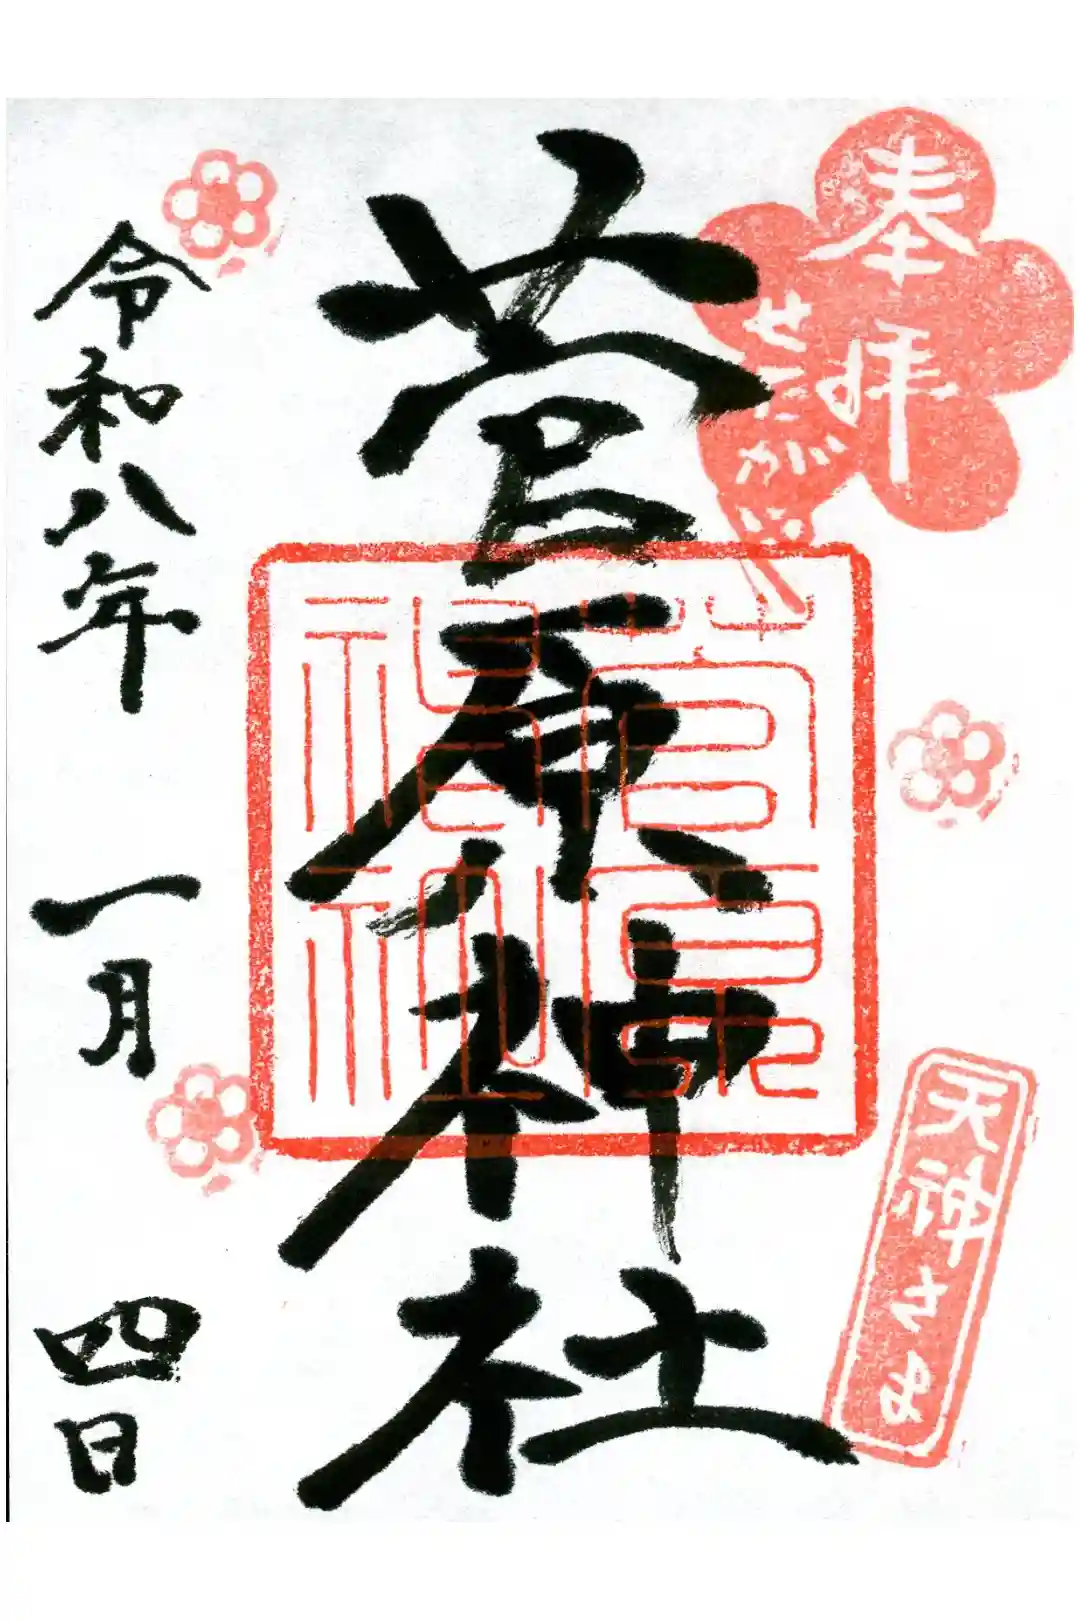 奉拝
せたがや
天神さま
菅原神社
菅原
神社
令和八年 一月 四日